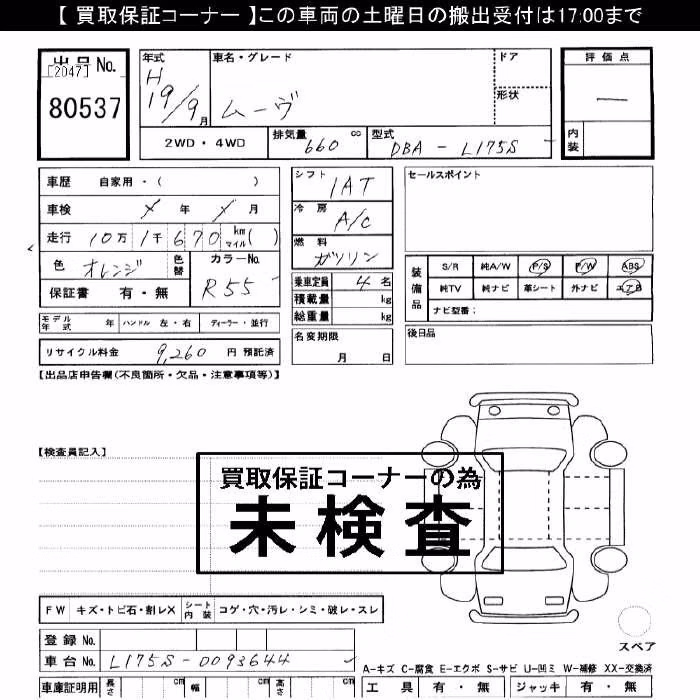 【 買取保証コーナー 】この車両の土曜日の搬出受付は17:00まで
出品 No.
[2047]
80537
年式
H
19/9月
車名・グレード
ムーヴ
ドア
形状
2WD ・ 4WD
排気量
660 cc
型式
DBA - L175S
評価点
―
内装
車歴 自家用・( )
車検 メ 年 メ 月
走行 10万1千670 km マイル( )
色 オレンジ
色替
カラーNo.
R55
保証書 有・無
シフト
IAT
冷房
A/C
燃料
ガソリン
乗車定員 4 名
積載量 kg
総重量 kg
名変期限
月 日
セールスポイント
装備品
S/R 純A/W P/S P/W ABS
純TV 純ナビ 革シート 外ナビ エアB
ナビ型番:
後日品
モデル年式 年 ハンドル 左・右 ディーラー・並行
リサイクル料金 9,260 円 預託済
【出品店申告欄(不良箇所・欠品・注意事項等)】
【検査員記入】
買取保証コーナーの為
未検査
FW キズ・トビ石・割レX シート内装 コゲ・穴・汚レ・シミ・破レ・スレ
スペア
登録 No.
車台 No. L175S-0093644
A-キズ C-腐食 E-エクボ S-サビ U-凹ミ W-補修 XX-交換済
車庫証明用 長さ cm 幅 cm 高さ cm
工具 有・無 ジャッキ 有・無